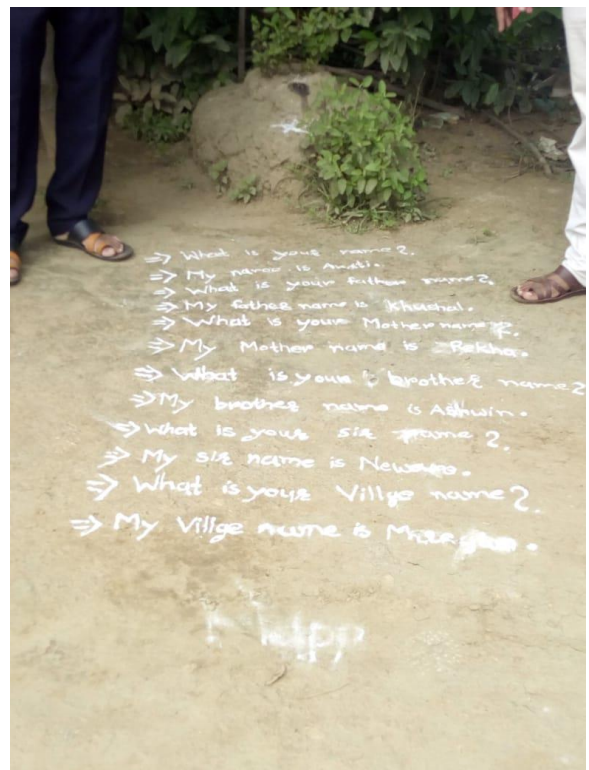 ⇒ What is your name?.
⇒ My name is Arati.
⇒ What is your father name?.
⇒ My father name is Khushal.
⇒ What is your Mother name?.
⇒ My Mother name is Rekha.
⇒ What is your brother name?
⇒ My brother name is Ashwin.
⇒ What is your sir name?.
⇒ My sir name is
⇒ What is your Villge name?.
⇒ My Villge name is